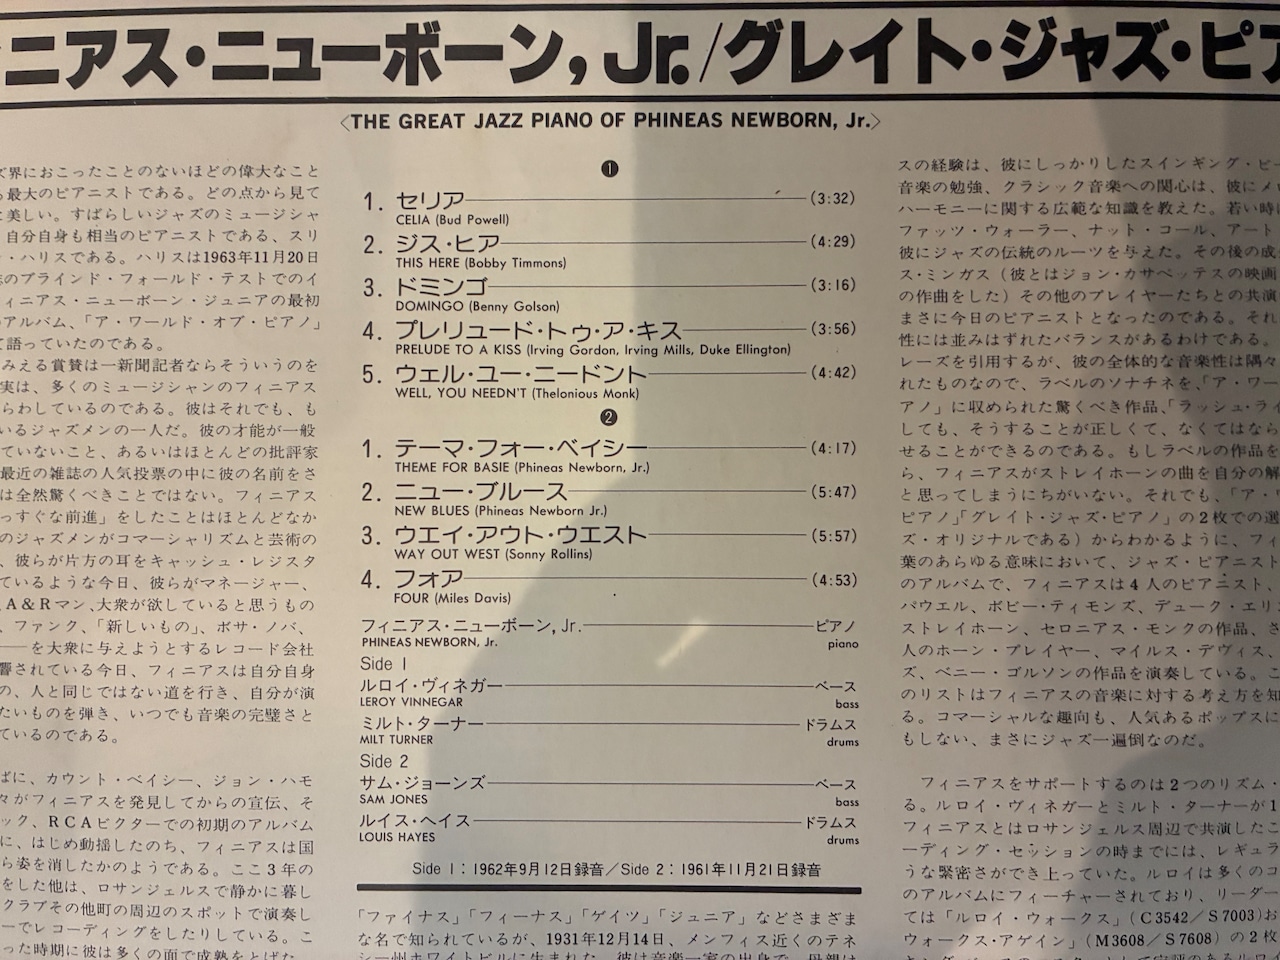 ニアス・ニューボーン, Jr./グレイト・ジャズ・ピア
〈THE GREAT JAZZ PIANO OF PHINEAS NEWBORN, Jr.〉
ズ界におこったことのないほどの偉大なこと
最大のピアニストである。どの点から見て
美しい。すばらしいジャズのミュージシャ
自分自身も相当のピアニストである、スリ
・ハリスである。ハリスは1963年11月20日
のブラインド・フォールド・テストでのイ
ィニアス・ニューボーン・ジュニアの最初
アルバム、「ア・ワールド・オブ・ピアノ」
て語っていたのである。
みえる賞賛は一新聞記者ならそういうのを
実は、多くのミュージシャンのフィニアス
らわしているのである。彼はそれでも、も
いるジャズメンの一人だ。彼の才能が一般
ていないこと、あるいはほとんどの批評家
最近の雑誌の人気投票の中に彼の名前をさ
は全然驚くべきことではない。フィニアス
っすぐな前進」をしたことはほとんどなか
のジャズメンがコマーシャリズムと芸術の
、彼らが片方の耳をキャッシュ・レジスタ
ているような今日、彼らがマネージャー、
A&Rマン、大衆が欲していると思うもの
、ファンク、「新しいもの」、ボサ・ノバ、
――を大衆に与えようとするレコード会社
響されている今日、フィニアスは自分自身
の、人と同じではない道を行き、自分が演
たいものを弾き、いつでも音楽の完璧さと
ているのである。
ばに、カウント・ベイシー、ジョン・ハモ
々がフィニアスを発見してからの宣伝、そ
ック、RCAビクターでの初期のアルバム
に、はじめ動揺したのち、フィニアスは国
ら姿を消したかのようである。ここ3年の
をした他は、ロサンジェルスで静かに暮し
クラブその他町の周辺のスポットで演奏し
ーでレコーディングをしたりしている。こ
った時期に彼は多くの面で成熟をとげた。
❶
1. セリア (3:32)
CELIA (Bud Powell)
2. ジス・ヒア (4:29)
THIS HERE (Bobby Timmons)
3. ドミンゴ (3:16)
DOMINGO (Benny Golson)
4. プレリュード・トゥ・ア・キス (3:56)
PRELUDE TO A KISS (Irving Gordon, Irving Mills, Duke Ellington)
5. ウェル・ユー・ニードント (4:42)
WELL, YOU NEEDN'T (Thelonious Monk)
❷
1. テーマ・フォー・ベイシー (4:17)
THEME FOR BASIE (Phineas Newborn, Jr.)
2. ニュー・ブルース (5:47)
NEW BLUES (Phineas Newborn Jr.)
3. ウエイ・アウト・ウエスト (5:57)
WAY OUT WEST (Sonny Rollins)
4. フォア (4:53)
FOUR (Miles Davis)
フィニアス・ニューボーン, Jr. ピアノ
PHINEAS NEWBORN, Jr. piano
Side 1
ルロイ・ヴィネガー ベース
LEROY VINNEGAR bass
ミルト・ターナー ドラムス
MILT TURNER drums
Side 2
サム・ジョーンズ ベース
SAM JONES bass
ルイス・ヘイス ドラムス
LOUIS HAYES drums
Side 1:1962年9月12日録音/Side 2:1961年11月21日録音
「ファイナス」「フィーナス」「ゲイツ」「ジュニア」などさまざま
な名で知られているが、1931年12月14日、メンフィス近くのテネ
シー州ホワイトビルに生まれた。彼は音楽一家の出身で、母親は
スの経験は、彼にしっかりしたスインギング・ビ
音楽の勉強、クラシック音楽への関心は、彼にメロ
ハーモニーに関する広範な知識を教えた。若い時に
ファッツ・ウォーラー、ナット・コール、アート・
彼にジャズの伝統のルーツを与えた。その後の成
ス・ミンガス(彼とはジョン・カサベッテスの映画
の作曲をした)その他のプレイヤーたちとの共演
まさに今日のピアニストとなったのである。それ
性には並みはずれたバランスがあるわけである。
レーズを引用するが、彼の全体的な音楽性は隅々
れたものなので、ラベルのソナチネを、「ア・ワー
アノ」に収められた驚くべき作品、「ラッシュ・ライ
しても、そうすることが正しくて、なくてはなら
せることができるのである。もしラベルの作品を
ら、フィニアスがストレイホーンの曲を自分の解
と思ってしまうにちがいない。それでも、「ア・
ピアノ」「グレイト・ジャズ・ピアノ」の2枚での選
ズ・オリジナルである)からわかるように、フィ
葉のあらゆる意味において、ジャズ・ピアニスト
のアルバムで、フィニアスは4人のピアニスト、
パウエル、ボビー・ティモンズ、デューク・エリン
ストレイホーン、セロニアス・モンクの作品、さ
人のホーン・プレイヤー、マイルス・デヴィス、
ズ、ベニー・ゴルソンの作品を演奏している。こ
のリストはフィニアスの音楽に対する考え方を知
る。コマーシャルな趣向も、人気あるポップスに
もしない、まさにジャズ一遍倒なのだ。
フィニアスをサポートするのは2つのリズム・
る。ルロイ・ヴィネガーとミルト・ターナーが1
フィニアスとはロサンジェルス周辺で共演したこ
ーディング・セッションの時までには、レギュラ
うな緊密さができ上っていた。ルロイは多くのコ
のアルバムにフィーチャーされており、リーダー
ては「ルロイ・ウォークス」(C3542/S7003)お
ウォークス・アゲイン」(M3608/S7608)の2枚